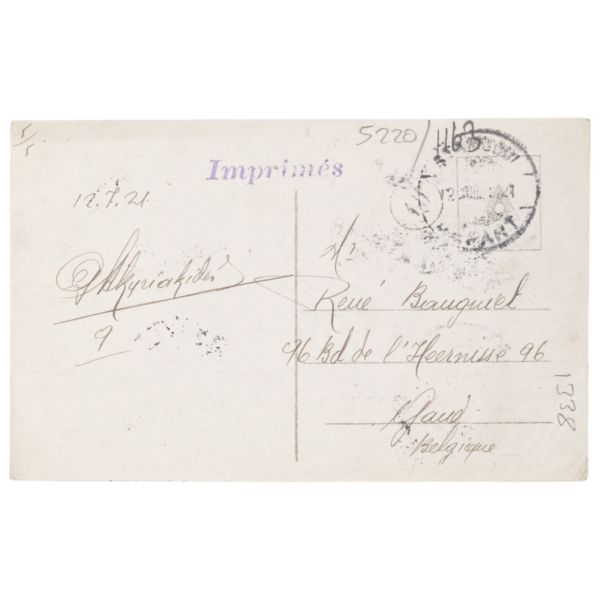 5/5
5220/1163
Imprimés
12.7.21
9
Mr
René Bauguiet
96 Bd de l'Heernisse 96
Gand
Belgique
1338
DEPART